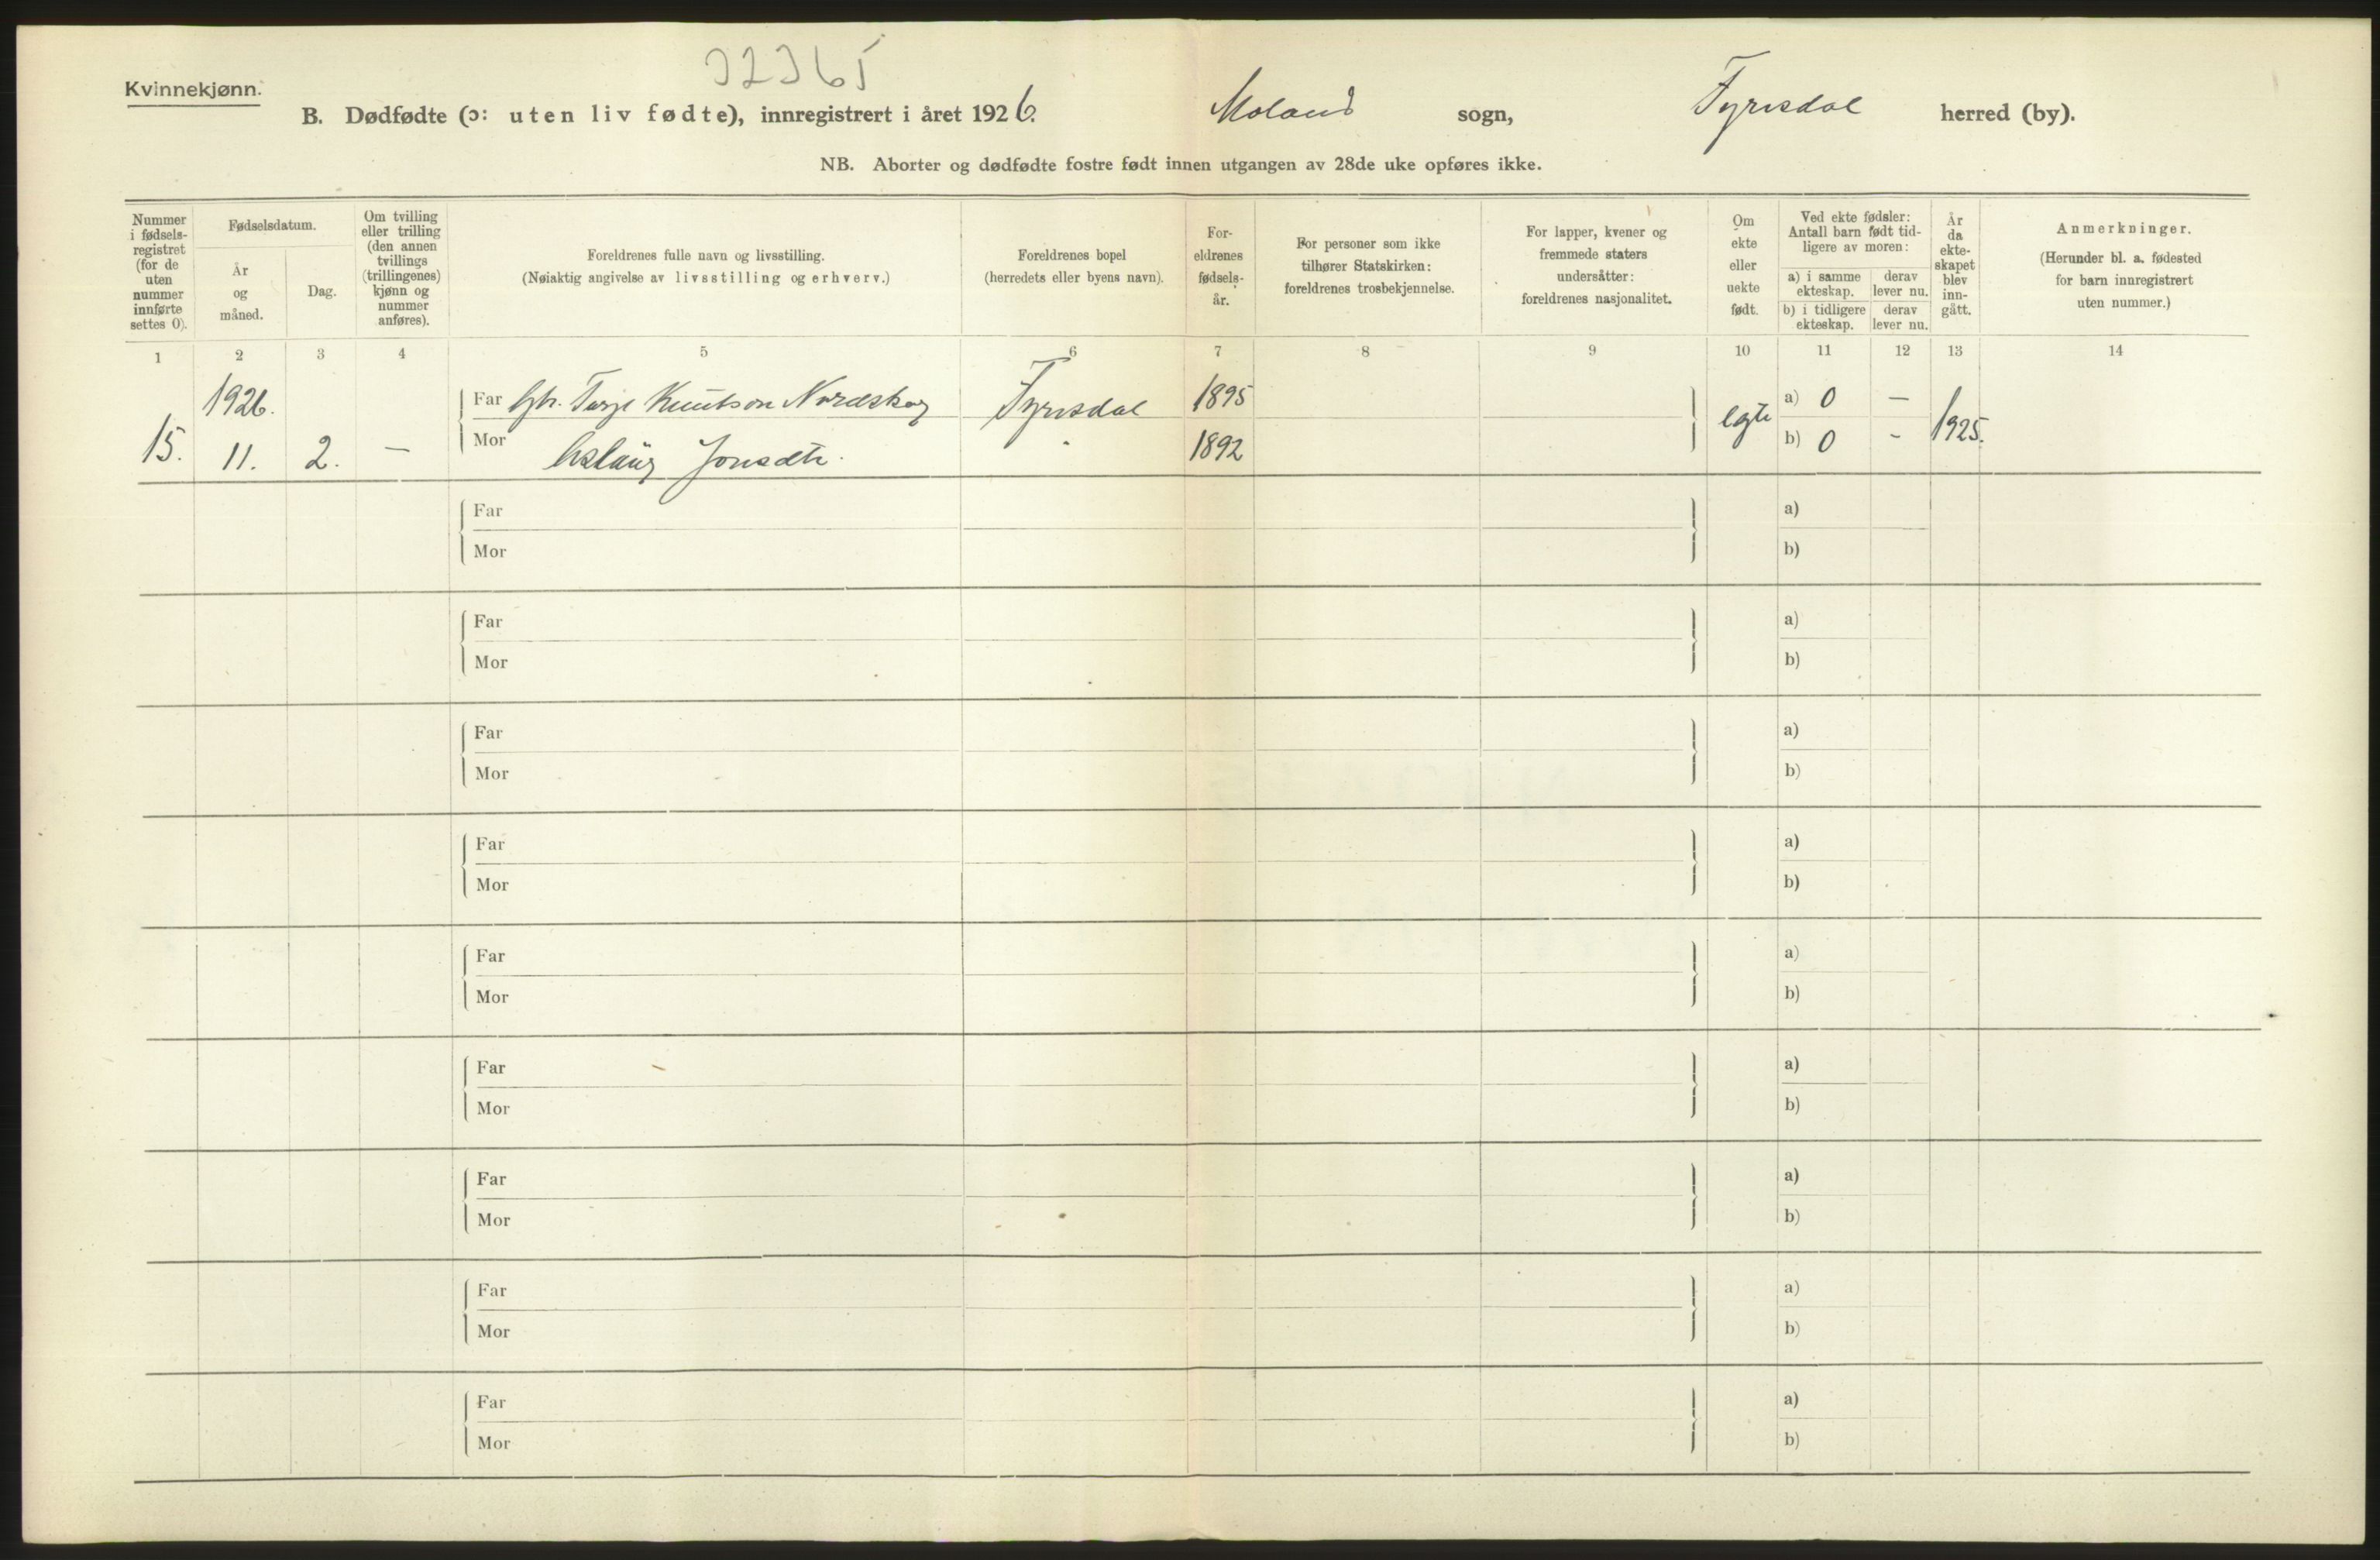 32365
Kvinnekjønn.
B. Dødfødte (ɔ: uten liv fødte), innregistrert i året 1926. Moland sogn, Tyrisdal herred (by).
NB. Aborter og dødfødte fostre født innen utgangen av 28de uke opføres ikke.
Nummer i fødsels-registret (for de uten nummer innførte settes 0).
Fødselsdatum.
År og måned.
Dag.
Om tvilling eller trilling (den annen tvillings (trillingenes) kjønn og nummer anføres).
Foreldrenes fulle navn og livsstilling.
(Nøiaktig angivelse av livsstilling og erhverv.)
Foreldrenes bopel
(herredets eller byens navn).
For-eldrenes fødsels-år.
For personer som ikke tilhører Statskirken: foreldrenes trosbekjennelse.
For lapper, kvener og fremmede staters undersåtter: foreldrenes nasjonalitet.
Om ekte eller uekte født.
Ved ekte fødsler: Antall barn født tid-ligere av moren:
a) i samme ekteskap.
derav lever nu.
b) i tidligere ekteskap.
derav lever nu.
År da ekte-skapet blev inn-gått.
Anmerkninger.
(Herunder bl. a. fødested for barn innregistrert uten nummer.)
1 2 3 4 5 6 7 8 9 10 11 12 13 14
1926. Far Gbr. Tarje Knutson Nordskog Tyrisdal 1895 egte a) 0 —
15. 11. 2. — Mor Aslaug Jonsdtr. " 1892 b) 0 - 1925.
Far a)
Mor b)
Far a)
Mor b)
Far a)
Mor b)
Far a)
Mor b)
Far a)
Mor b)
Far a)
Mor b)
Far a)
Mor b)
Far a)
Mor b)
Far a)
Mor b)